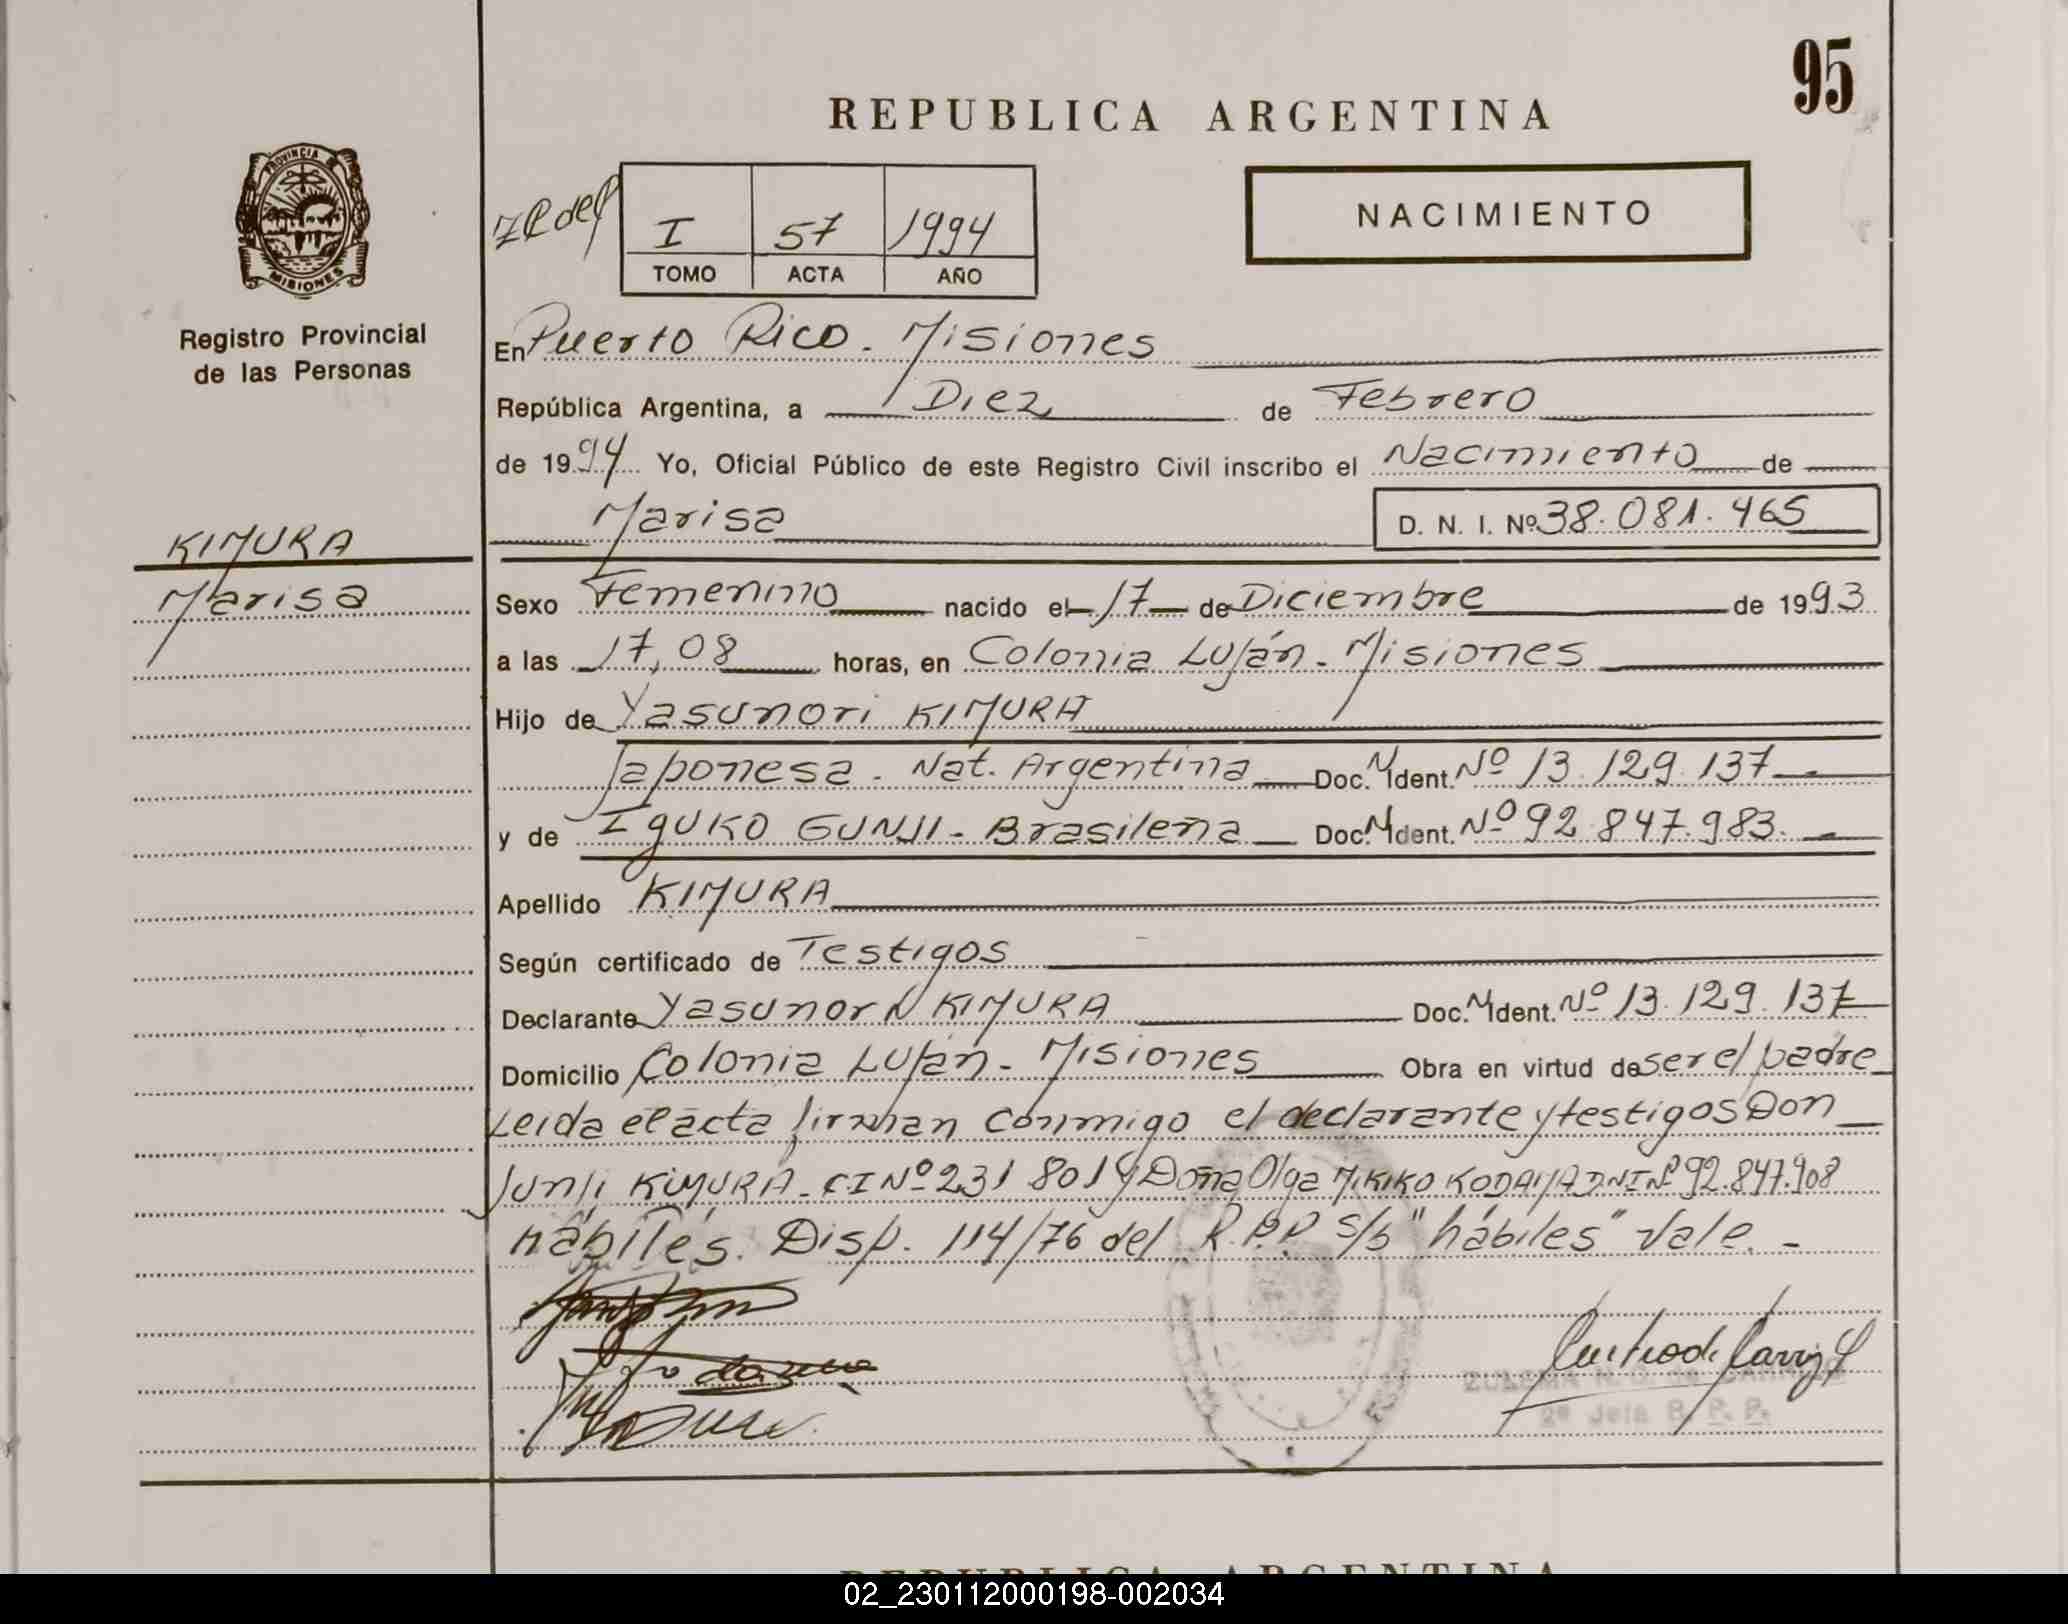 95
REPUBLICA ARGENTINA
PROVINCIA DE
MISIONES
Registro Provincial
de las Personas
I 57 1994
TOMO ACTA AÑO
NACIMIENTO
En Puerto Rico - Misiones
República Argentina, a Diez de Febrero
de 1994 Yo, Oficial Público de este Registro Civil inscribo el Nacimiento de
Marisa D. N. I. Nº 38.081.465
KIMURA
Marisa
Sexo Femenino nacido el 17 de Diciembre de 1993
a las 17,08 horas, en Colonia Luján - Misiones
Hijo de Yasunori KIMURA
Japonesa - Nat. Argentina Doc. M Ident. Nº 13.129.137
y de Iguko GUNJI - Brasileña Doc. M Ident. Nº 92.847.983.
Apellido KIMURA
Según certificado de Testigos
Declarante Yasunori KIMURA Doc. M Ident. Nº 13.129.137
Domicilio Colonia Luján - Misiones Obra en virtud de ser el padre
Leida el acta firman conmigo el declarante y testigos Don
Junji KIMURA - C.I Nº 231801 y Doña Olga MIKIKO KODAMA DNI Nº 92.847.908
hábiles. Disp. 114/76 del R.P.P. s/b "hábiles" Vale. -
ZULEMA N. C. de
2º Jefa R. P. P.
REPUBLICA ARGENTINA
02_230112000198-002034